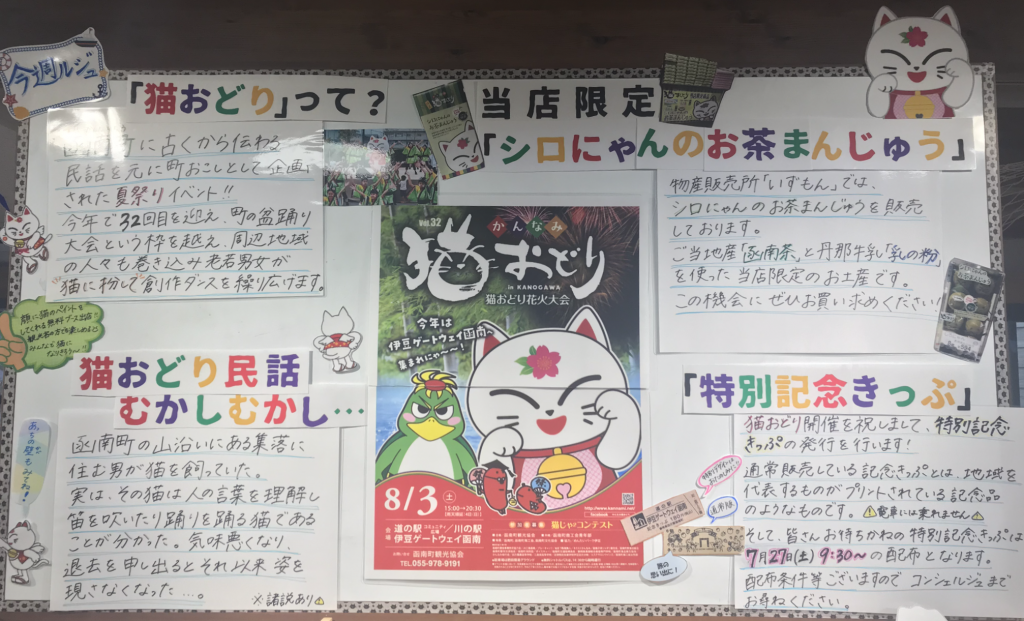 今週ルジュ
「猫おどり」って？
函南町に古くから伝わる
民話を元に町おこしとして企画
された夏祭りイベント!!
今年で32回目を迎え、町の盆踊り
大会という枠を越え、周辺地域
の人々も巻き込み老若男女が
猫に扮して創作ダンスを繰り広げます。
顔に猫のペイントを
してくれる無料ブース出店!
観光客の方でも楽しめる
みんなも猫に
なりきろう〜!!
猫おどり民話
むかしむかし…
あちの壁も
みてね!
函南町の山沿いにある集落に
住む男が猫を飼っていた。
実は、その猫は人の言葉を理解し
笛を吹いたり踊りを踊る猫である
ことが分かった。気味悪くなり
退去を申し出るとそれ以来 姿を
現さなくなった…。
※諸説あり⚠
Vol.32
かんなみ
猫おどり
in KANOGAWA
猫おどり花火大会
今年は
伊豆ゲートウェイ函南へ
集まれにゃ〜〜!
8/3(土)
15:00→20:30
会場
道の駅 コミュニティ広場/川の駅
伊豆ゲートウェイ函南
函南町観光協会
TEL.055-978-9191
猫じゃコンテスト
当店限定
「シロにゃんのお茶まんじゅう」
物産販売所「いずもん」では、
シロにゃんのお茶まんじゅうを販売
しております。
ご当地産「函南茶」と丹那牛乳「乳の粉」
を使った当店限定のお土産です。
この機会にぜひお買い求めください!
「特別記念きっぷ」
猫おどり開催を祝しまして、特別記念
きっぷの発行を行います!
通常販売している記念きっぷとは、地域を
代表するものがプリントされている記念品
のようなものです。⚠電車には乗れません⚠
そして、皆さんお待ちかねの特別記念きっぷは
7月27日(土) 9:30〜の配布となります。
配布条件等ございますのでコンシェルジュまで
お尋ねください。
通常版
旅の
思い出に!